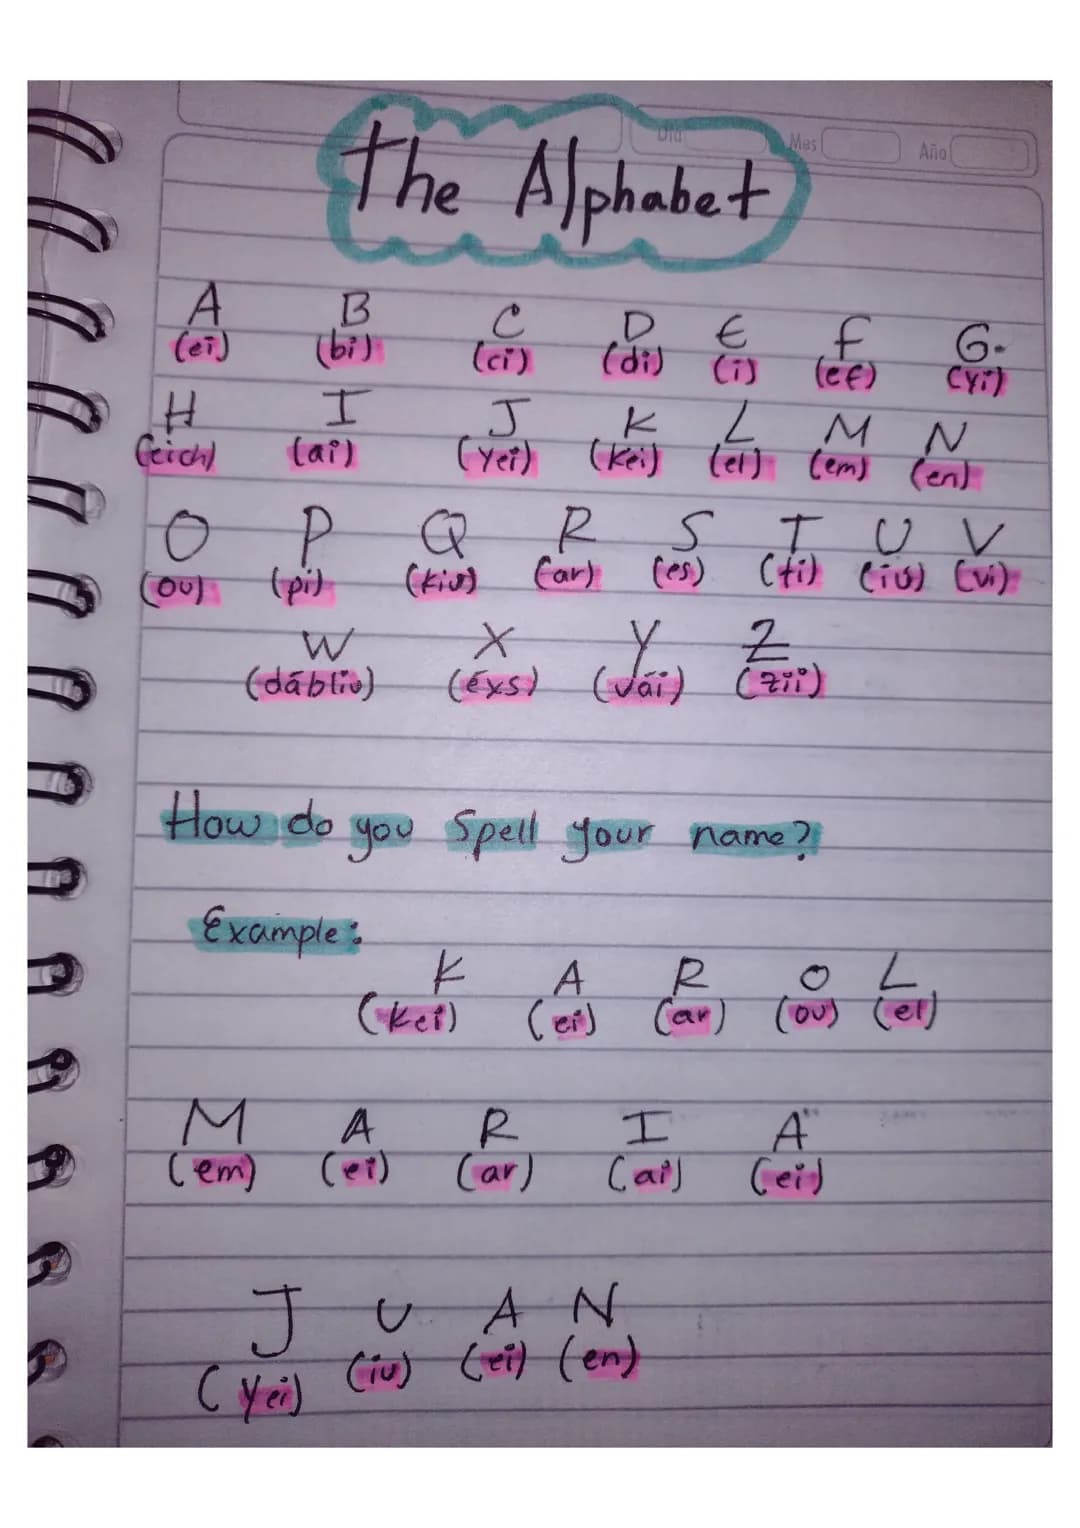 Día Mes Año
The Alphabet
A B C D E F G.
(ei) (bi) (ci) (di) (i) (ef) (yi)
H I J K L M N
(eich) (ai) (yei) (kei) (el) (em) (en)
O P Q R S T U V
(ou) (pi) (kiu) (ar) (es) (ti) (iu) (vi)
W X Y Z
(dábliu) (éxs) (uái) (zii)
How do you Spell your name?
Example:
K A R O L
(kei) (ei) (ar) (ou) (el)
M A R I A
(em) (ei) (ar) (ai) (ei)
J U A N
(yei) (iu) (ei) (en)